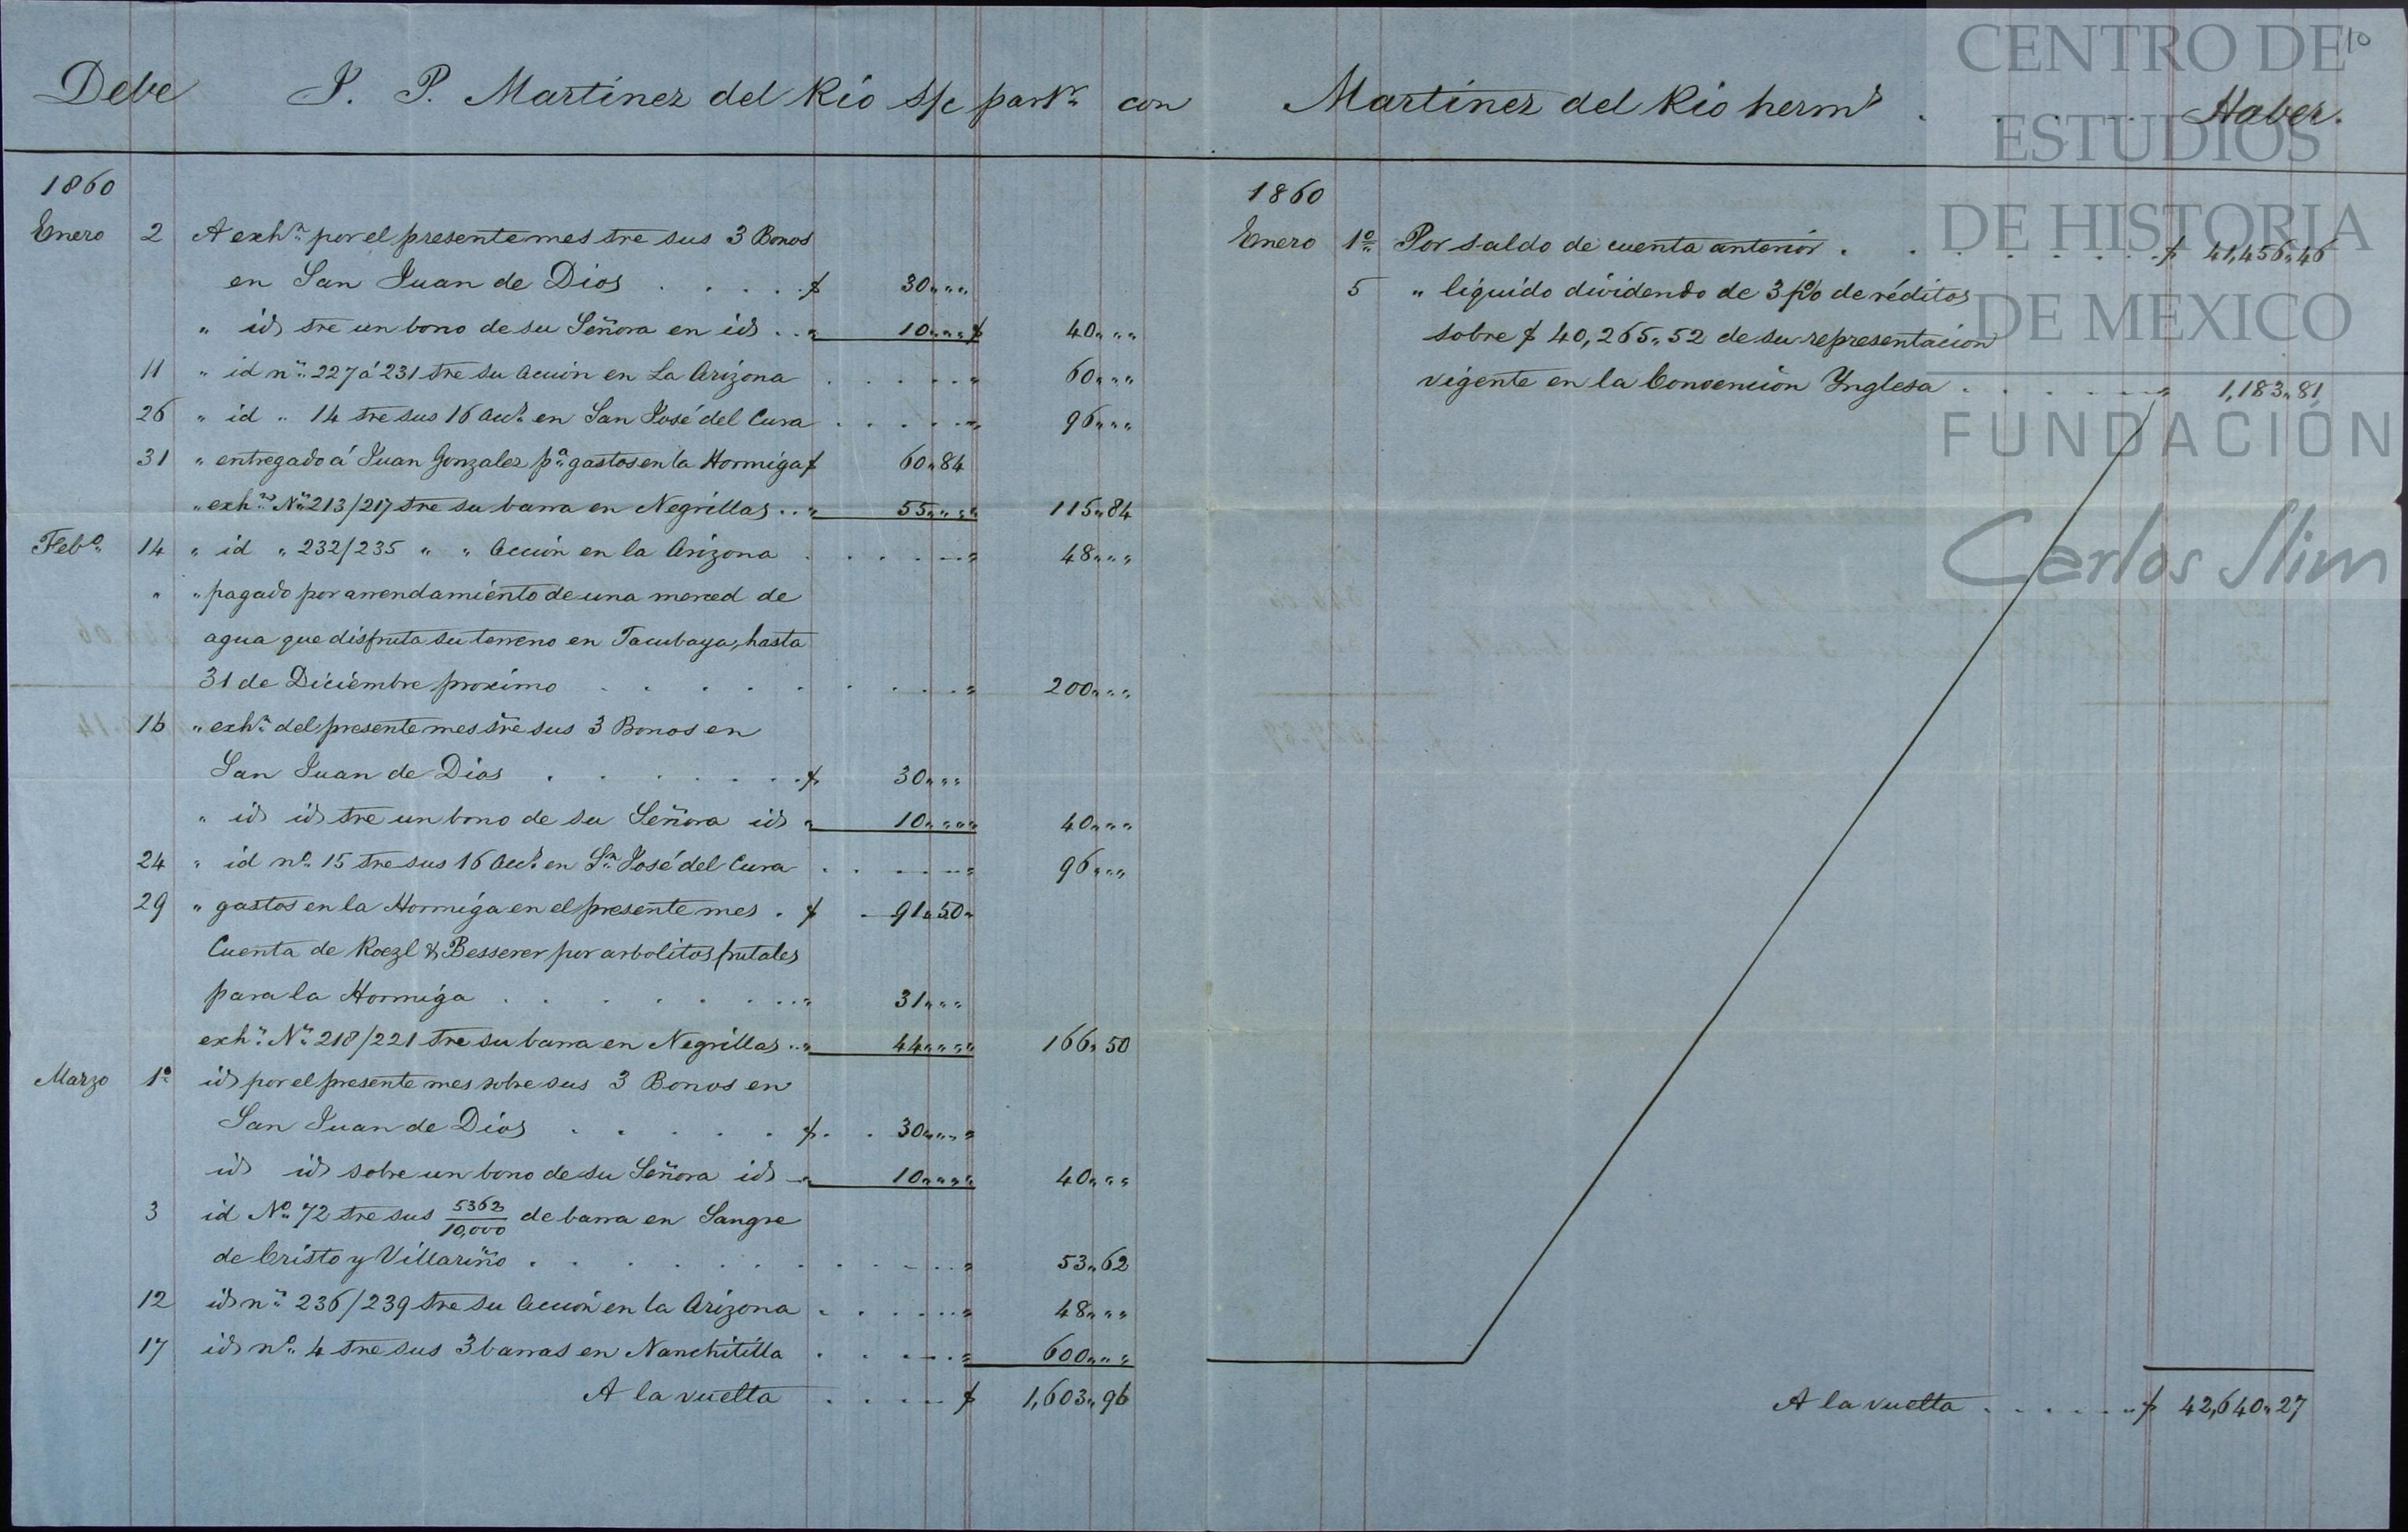 Debe J. P. Martinez del Rio s/c partr con Martinez del Rio herms Haber.
10
1860
Enero 2 A exhn por el presente mes sre sus 3 Bonos
en San Juan de Dios . . . . . $ 30,,,,
,, id sre un bono de su Señora en id . . ,, 10,,,, $ 40,,,,
11 ,, id ns 227 á 231 sre su Acción en La Arizona . . . . . ,, 60,,,,
26 ,, id ,, 14 sre sus 16 Accs en San José del Cura . . . . . ,, 96,,,,
31 ,, entregado á Juan Gonzalez pa gastos en la Hormiga $ 60,,84
,, exhs Ns 213/217 sre su barra en Negrillas . . ,, 55,,,, ,, 115,,84
Febo 14 ,, id ,, 232/235 ,, ,, Acción en la Arizona . . . . . ,, 48,,,,
,, ,, pagado por arrendamiento de una merced de
agua que disfruta su terreno en Tacubaya, hasta
31 de Diciembre proximo . . . . . . . . . ,, 200,,,,
16 ,, exhn del presente mes sre sus 3 Bonos en
San Juan de Dios . . . . . . . $ 30,,,,
,, id id sre un bono de su Señora id ,, 10,,,, ,, 40,,,,
24 ,, id no 15 sre sus 16 Accs en Sn José del Cura . . . . . ,, 96,,,,
29 ,, gastos en la Hormiga en el presente mes . $ 91,,50
Cuenta de Roezl & Besserer por arbolitos frutales
para la Hormiga . . . . . . . . ,, 31,,,,
exhs Ns 218/221 sre su barra en Negrillas . . ,, 44,,,, ,, 166,,50
Marzo 1o id por el presente mes sobre sus 3 Bonos en
San Juan de Dios . . . . . $ . . 30,,,,
id id sobre un bono de su Señora id ,, 10,,,, ,, 40,,,,
3 id No 72 sre sus 5362/10,000 de barra en Sangre
de Cristo y Villariño . . . . . . . . . . ,, 53,,62
12 id ns 236/239 sre su Acción en la Arizona . . . . . ,, 48,,,,
17 id no 4 sre sus 3 barras en Nanchititla . . . . . ,, 600,,,,
A la vuelta . . . . . $ 1,603,,96
1860
Enero 1o Por saldo de cuenta anterior . . . . . . . $ 41,456,,46
5 ,, liquido dividendo de 3 p% de réditos
sobre $ 40,265,,52 de su representacion
vigente en la Convención Ynglesa . . . . . . ,, 1,183,,81
A la vuelta . . . . . . $ 42,640,,27
CENTRO DE
ESTUDIOS
DE HISTORIA
DE MEXICO
FUNDACIÓN
Carlos Slim